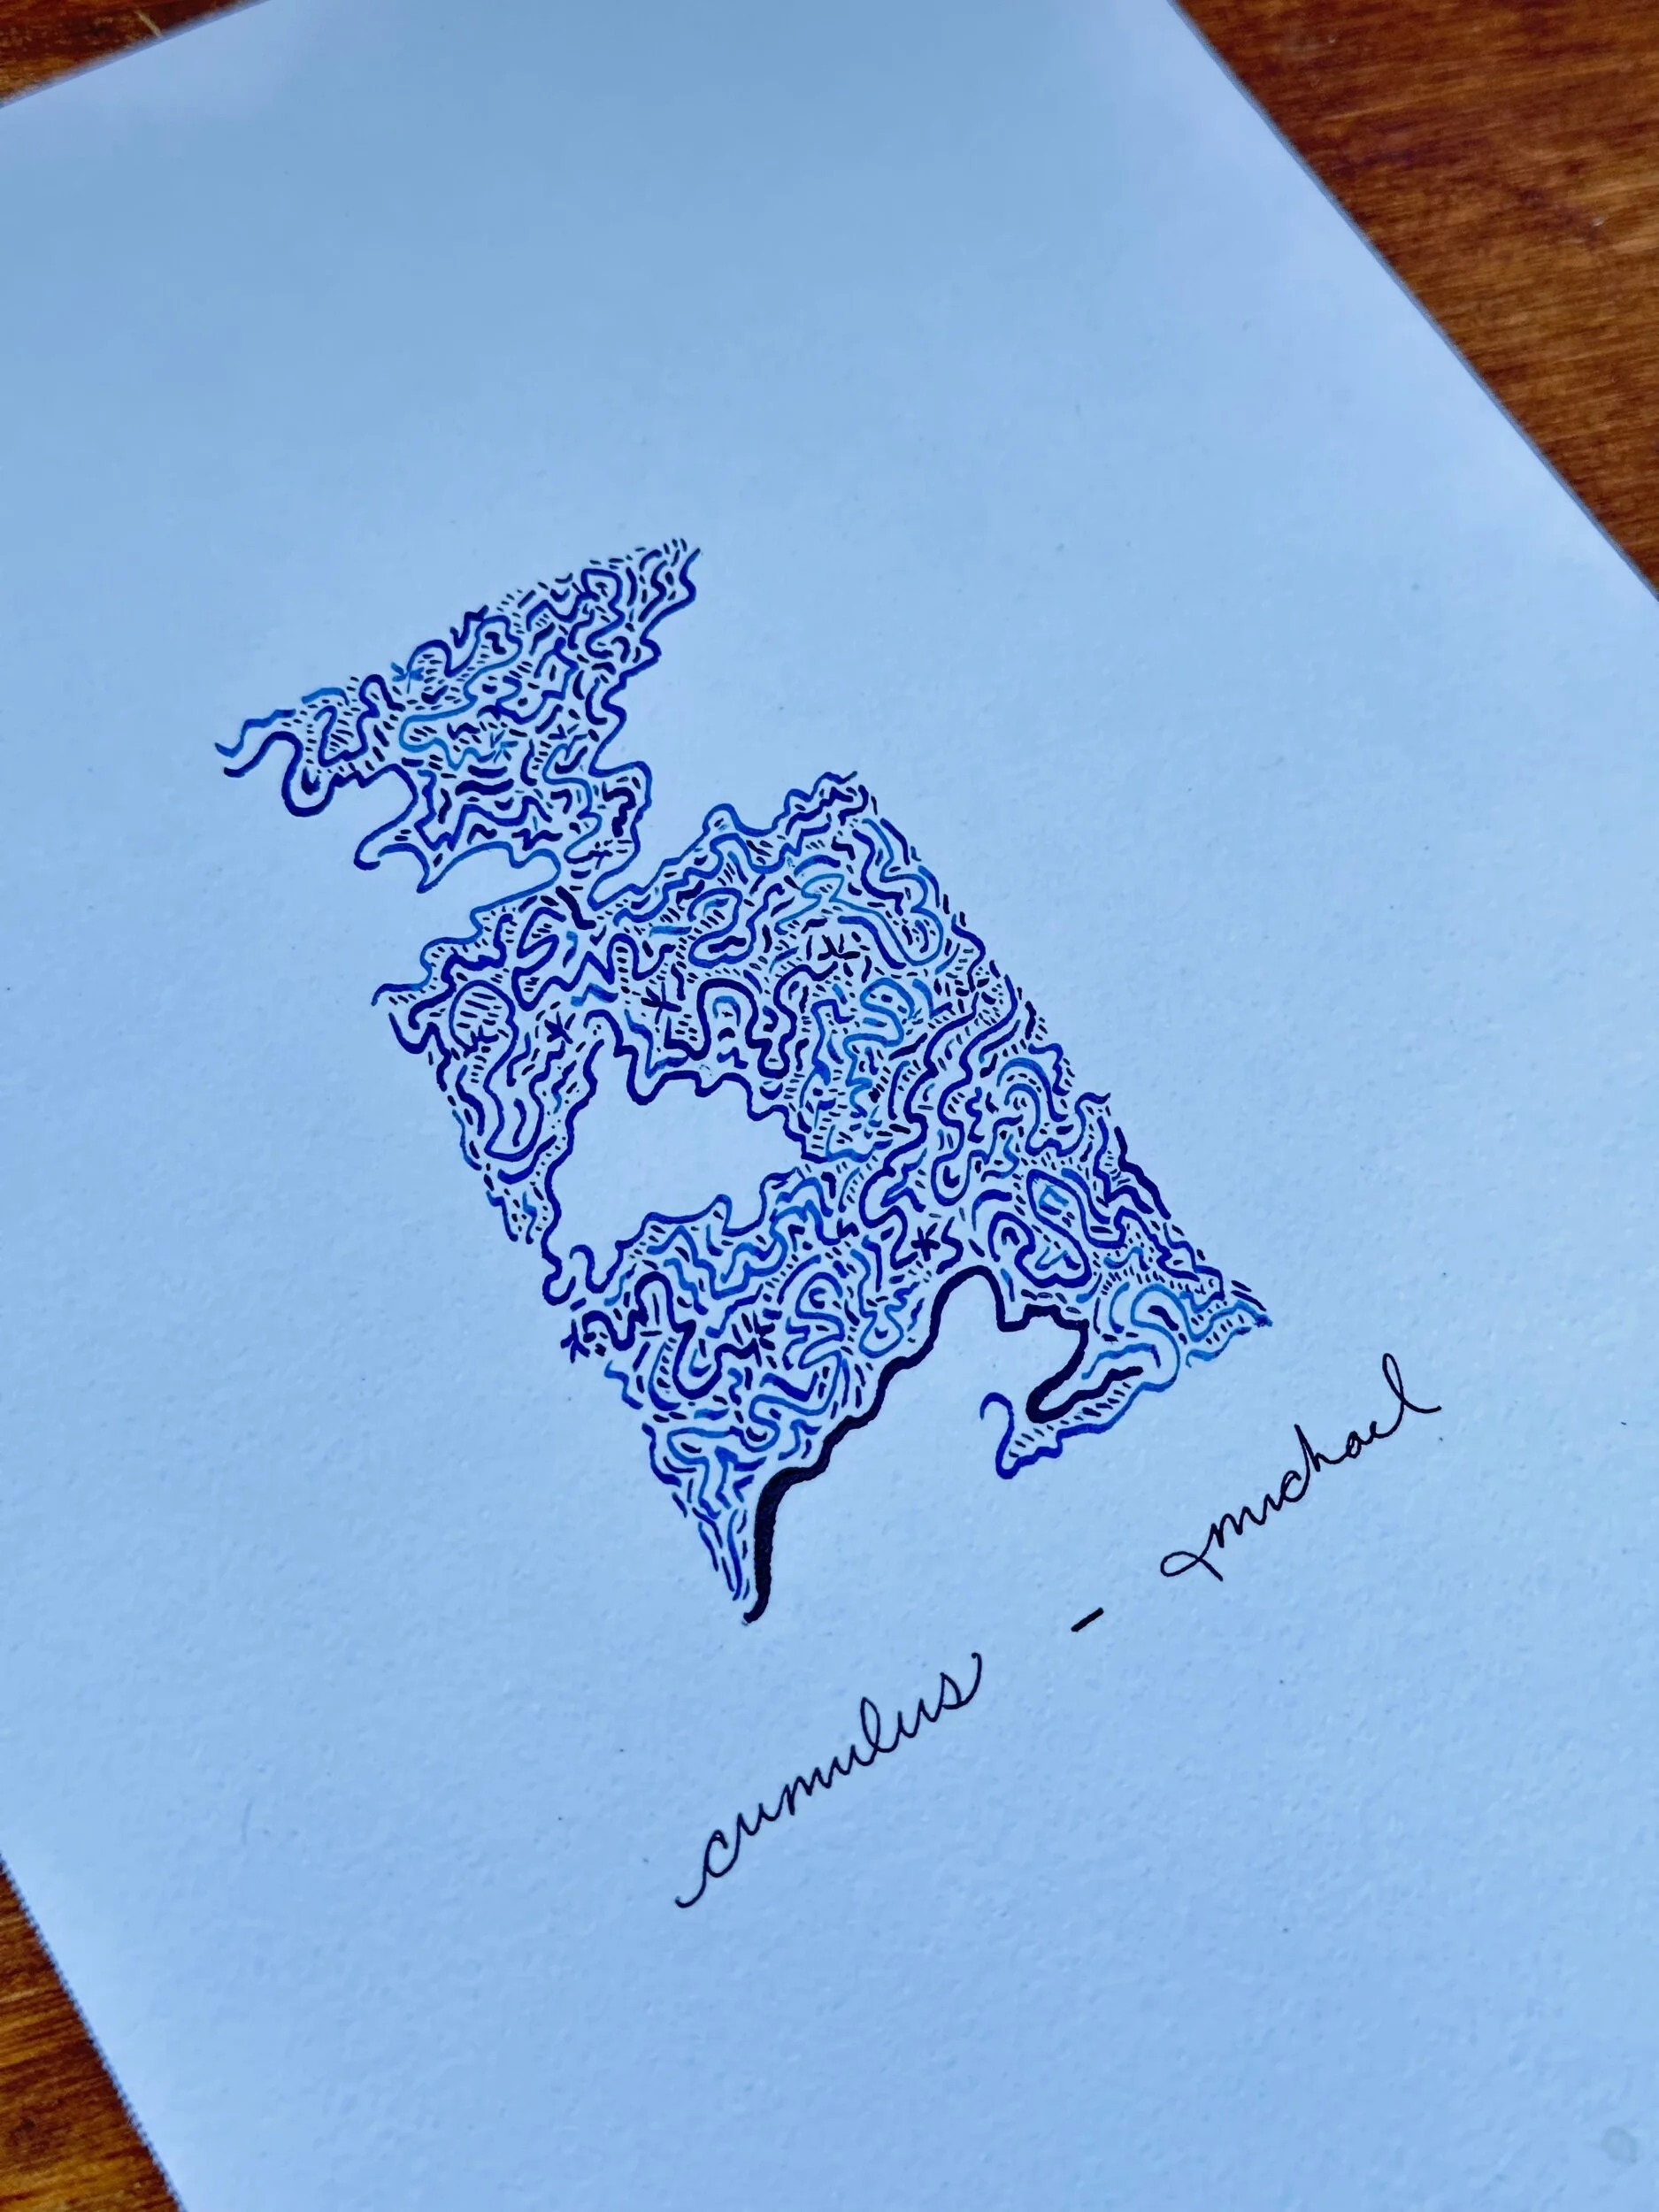 cumulus - michael